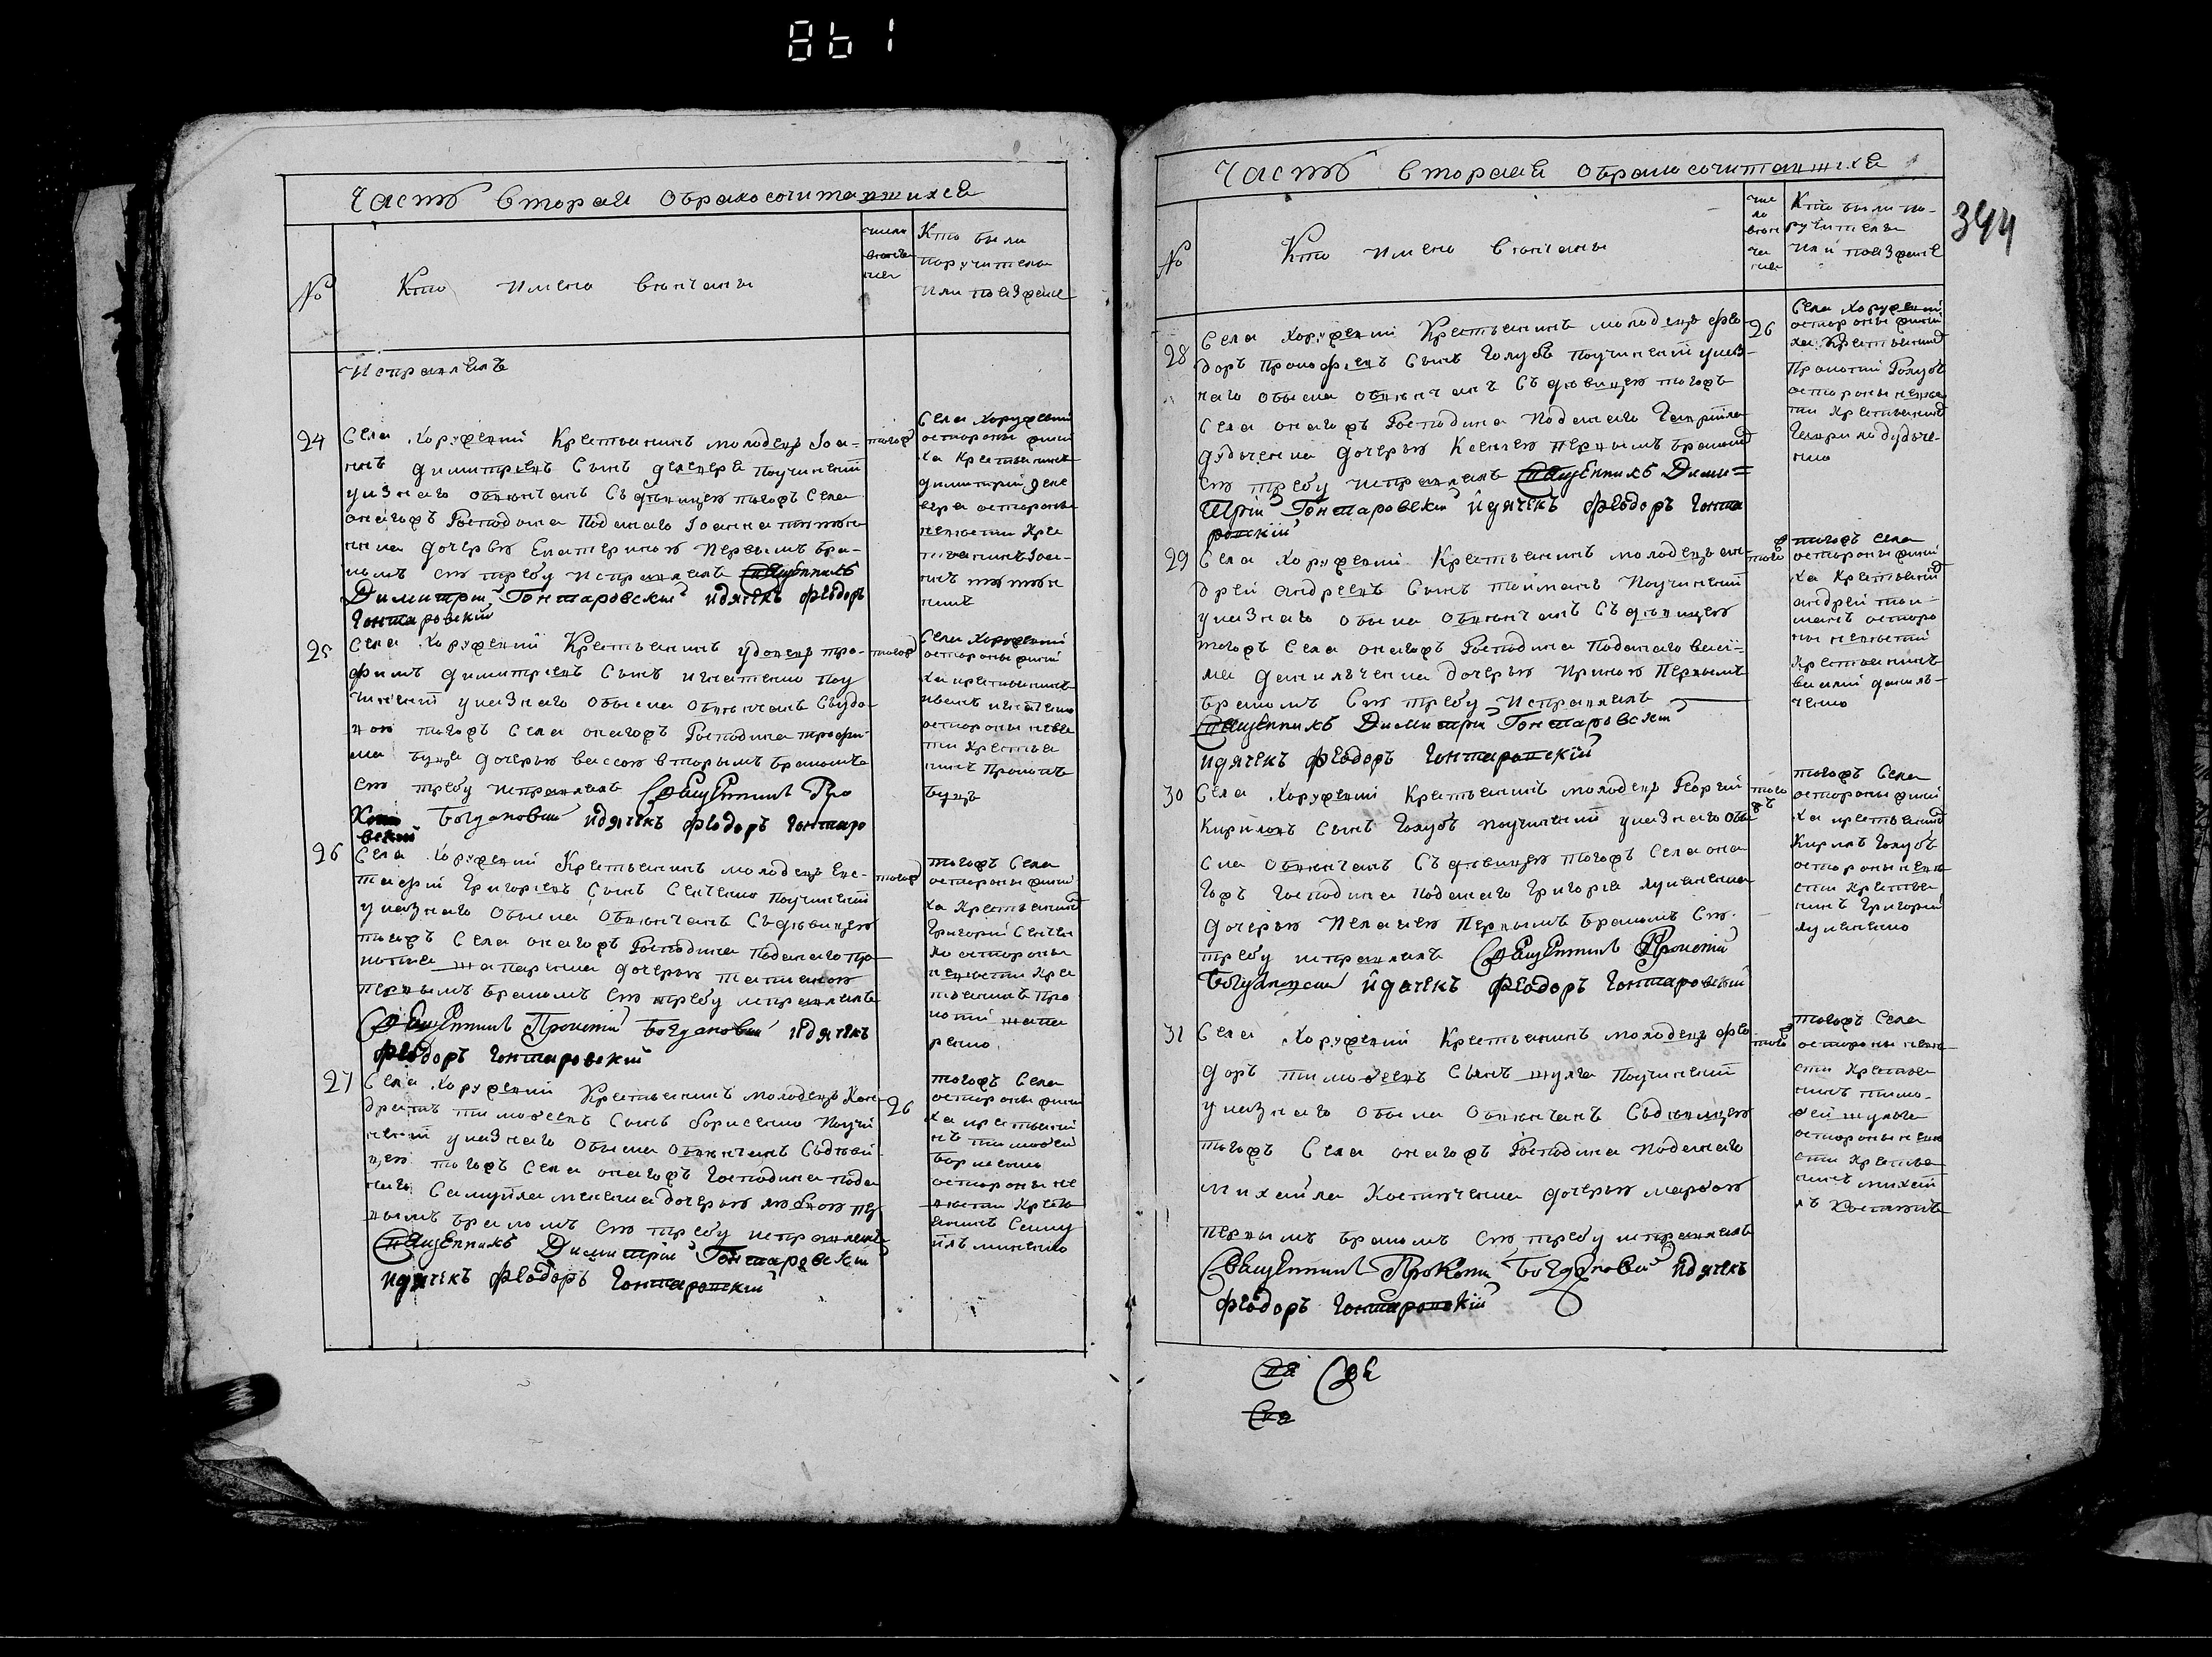 861
Часть вторая обракосочитавшихся
№
Кто имено венчаны
число венчания
Кто были
поручители
или поезжане
исправлялъ
24
Села Хоружевки Крестьянинъ молодецъ Іоа-
ннъ димитриевъ Сынъ
указного обвенчанъ Съ девицею тогожъ Села
оногожъ Господина Поданаго Іоанна
дочерью Екатериною Первымъ бра-
комъ сию требу исправлялъ Священникъ
Димитрий Гонтаровский идячекъ феодоръ
Гонтаровский
тогожъ
Села Хоружевки
остороны жени
ха Крестьянинъ
димитрий
остороны
невести Кре
стьянинъ Іоа-
ннъ
25
Села Хоружевки Крестьянинъ удовецъ тро-
фимъ димитриевъ Сынъ игнатенко Поу
чинений указного обыска обвенчанъ Съудо-
вою тогожъ Села оногожъ Господина трофи-
ма дочерью вассою вторымъ бракомъ
сию требу исправлялъ Священникъ Про
копий Богдановский идячекъ феодоръ Гонтаро
вский
тогожъ
Села Хоружевки
остороны жени
ха крестьянинъ
иванъ игнатенко
остороны неве
сти Крестья
нинъ Прокопъ
26
Села Хоружевки Крестьянинъ молодецъ Евс-
тафий Григориевъ Сынъ Поучинений
указного обыска обвенчанъ Съдевицею
тогожъ Села оногожъ Господина Поданаго Про-
копия Шапаренка дочерью татияною
Первымъ бракомъ сию требу исправлялъ
Священникъ Прокопий Богдановский идячекъ
феодоръ Гонтаровский
тогожъ
тогожъ Села
остороны жени
ха Крестьянинъ
Григорий
остороны
невести Кре
стьянинъ Про
копий Шапа
ренко
27
Села Хоружевки Крестьянинъ молодецъ Кон-
дратъ тимофеевъ Сынъ борисенко Поучи
нений указного обыска обвенчанъ Съдеви
цею тогожъ Села оногожъ Господина Пода
наго Самуйла миненка дочерью любовю пер
вымъ бракомъ сию требу исправлялъ
Священникъ Димитрий Гонтаровский
идячекъ феодоръ Гонтаровский
26
тогожъ Села
остороны жени
ха крестьяни
нъ тимофей
Борисенко
остороны не
вести Кресть
янинъ Саму
йлъ миненко
344
Часть вторая обракосочитавшихся
№
Кто имено венчаны
чис
ло
венч
ча
ния
Кто были по-
ручители
или поезжане
28
Села Хоружевки Крестьянинъ молодецъ фео-
доръ Прокофиевъ Сынъ Голубъ Поучинений указ-
наго обыска обвенчанъ Съ девицею тогожъ
Села оногожъ Господина Поданаго Гаврийла
дудченка дочерью Ксениею Первымъ бракомъ
сию требу исправлялъ Священникъ Дими=
трий Гонтаровский идячекъ феодоръ Гонта
ровский
26
Села Хоружевки
остороны жени
ха Крестьянинъ
Прокопий Голубъ
остороны невес
ти Крестьянинъ
Гаврило дудче-
нко
29
Села Хоружевки Крестьянинъ молодецъ ан-
дрей андреевъ Сынъ тойманъ Поучинений
указнаго обыска обвенчанъ Съ девицею
тогожъ Села оногожъ Господина Поданаго васи-
лия данильченка дочерью ириною Первымъ
бракомъ Сию требу исправлялъ
Священникъ Димитрий Гонтаровский
идячекъ феодоръ Гонтаровский
тогожъ
тогожъ Села
остороны жени
ха Крестьянинъ
андрей той-
манъ осторо
ны невести
Крестьянинъ
василий даниль-
ченко
30
Села Хоружевки Крестьянинъ молодецъ Георгий
Кириловъ Сынъ Голубъ поучинений указнаго обы
ска обвенчанъ Съ девицею тогожъ Села оно
гожъ Господина Поданаго Григория лукаенка
дочерью Пелагиею Первымъ бракомъ Сию
требу исправлялъ Священникъ Прокопий
Богдановский идячекъ феодоръ Гонтаровский
тогожъ
тогожъ Села
остороны жени
ха крестьянинъ
Кирилъ Голубъ
остороны неве
сти Крестья
нинъ Григорий
лукаенко
31
Села Хоружевки Крестьянинъ молодецъ фео-
доръ тимофеевъ Сынъ шуляга Поучинений
указнаго обыска обвенчанъ Съдевицею
тогожъ Села оногожъ Господина Поданаго
михайла дочерью марфою
Первымъ бракомъ сию требу исправлялъ
Священникъ Прокопий Богдановский идячекъ
феодоръ Гонтаровский
тогожъ
тогожъ Села
остороны неве
сти Крестья
нинъ тимо-
фей шуляга
остороны неве
сти Крестья
нинъ михай
лъ